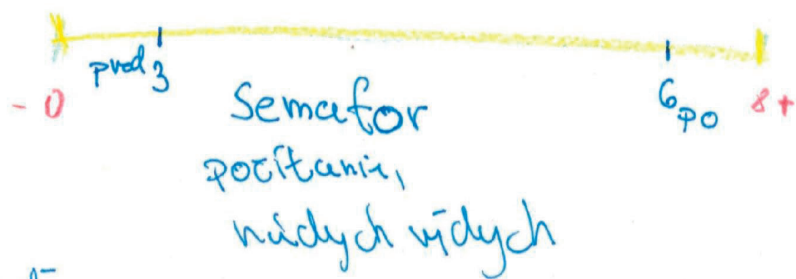 pred 3
6 po
- 0
8 +
Semafor
počítanie,
nádych výdych